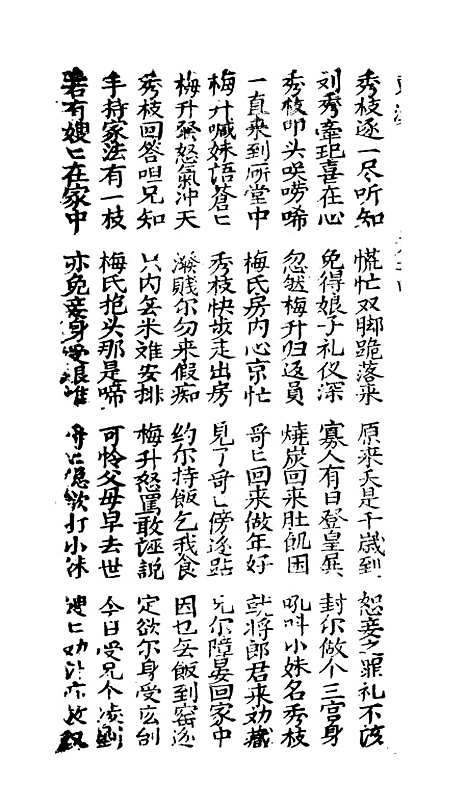 秀枝逐一尽听知 慌忙双脚跪落来 原来夫是千歲到 恕妾之罪礼不该
刘秀牽喜在心 免得娘子礼仪深 寡人有日登皇 封尔做个三宫身
秀枝叩头唠啼 忽然梅升归返員 燒炭回来肚飢困 吼叫小妹名秀枝
一直来到所堂中 梅氏房内心京忙 哥匕回来做年好 就将郎君来劝藏
梅升喊妹语蒼匕 秀枝快步走出房 見了哥匕傍边 兄尔障晏回家中
梅升發怒氣冲天 潑賤尔勿来假痴 约尔持飯乞我食 因乜旡飯到窑边
秀枝回答呾兄知 只内旡米难安排 梅升怒罵敢誣説 定欲尔身受
手持家法有一枝 梅氏抱头那是啼 可怜父母早去世 今日受兄个凌
若有嫂匕在家中 亦免妾身受狼 哥匕欲打小妹 嫂匕劝